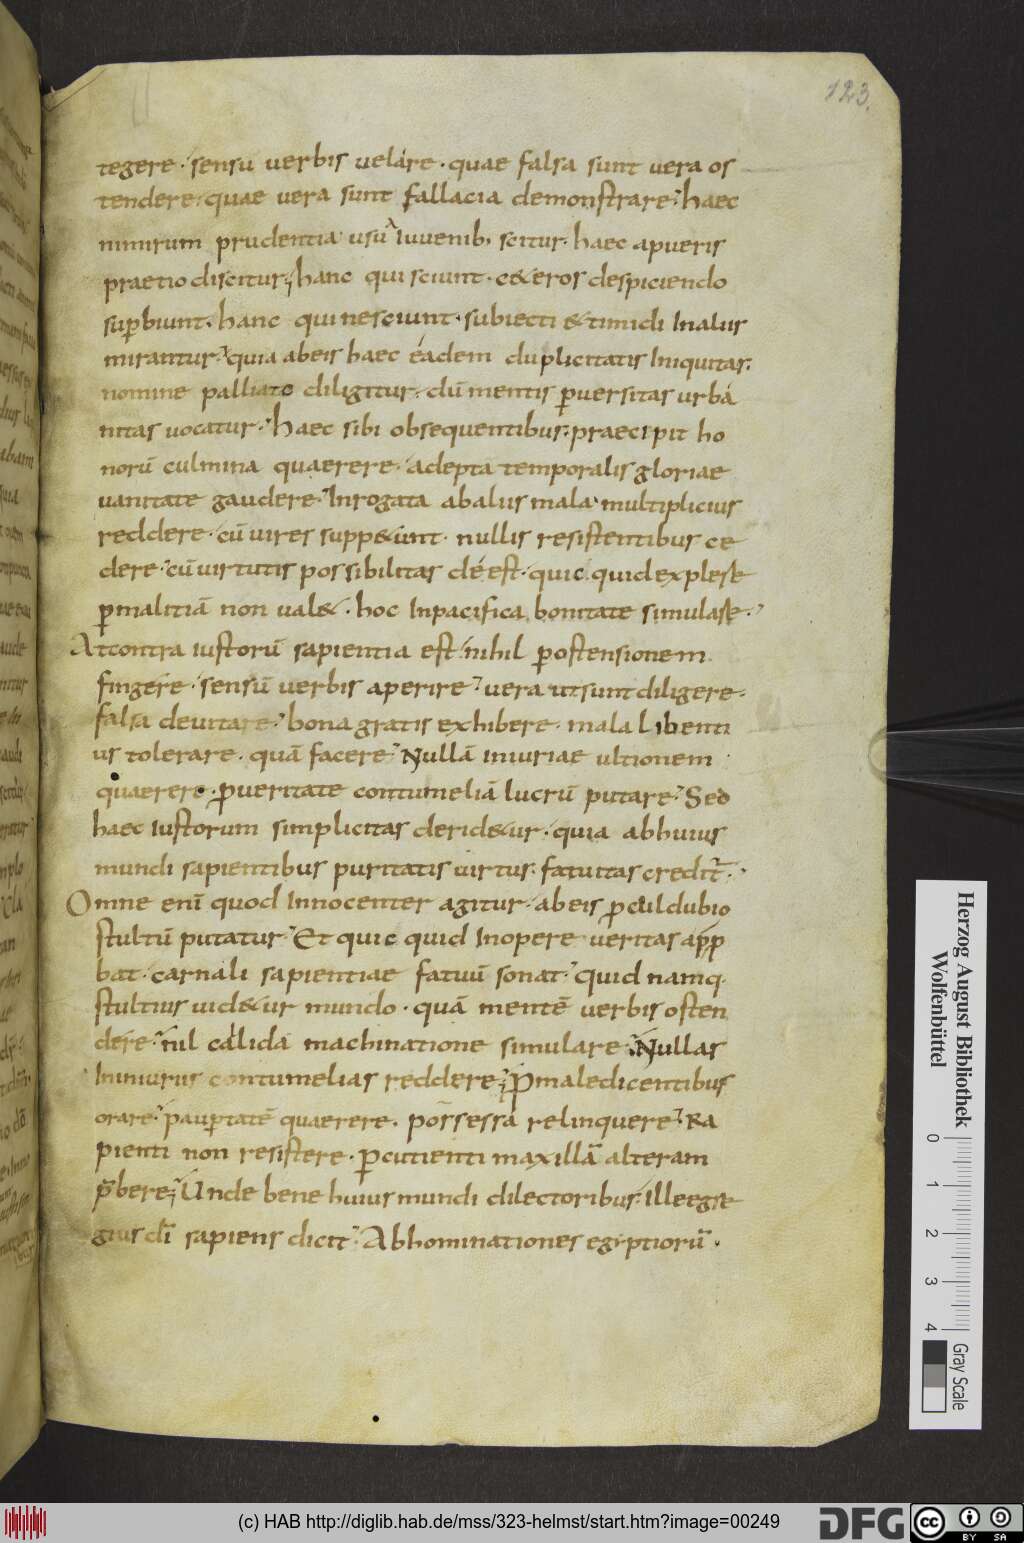 123.
tegere · sensu verbis veláre · quae falsa sunt vera os
tendere · quae vera sunt fallacia demonstrare · haec
nimirum prudentia usu A iuvenib; scitur · haec apueris
praetio discitur; hanc qui sciunt · c&eros despiciendo
supbiunt · hanc qui nesciunt · subiecti &timidi Inalus
mirantur · quia abeis haec éadem duplicitatis Iniquitas ·
nomine palliato diligitur · dū mentis pversitas urbá
nitas vocatur · haec sibi obsequentibus · praecipit ho
norū culmina quaerere · adepta temporalis gloriae
vanitate gaudere · Inrogata abalus mala · multiplicius
reddere · cū vires supp&unt · nullis resistentibus ce
dere · cū virtutis possibilitas déest · quic quid explere
pmalitiā non val& · hoc Inpacifica bonitate simulare ·
Atcontra iustorū sapientia est · nihil postensionem
fingere · sensū verbis aperire · vera utsunt diligere ·
falsa devitare · bona gratis exhibere · mala libenti
us tolerare · quā facere · Nullā iniuriae ultionem
quaerere · pveritate contumeliā lucrū putare · Sed
haec iustorum simplicitas derid&ur · quia abhuius
mundi sapientibus puritatis virtus · fatuitas credit ·
Omne enī quod Innocenter agitur · abeis pculdubio
stultū putatur · Et quic quid Inopere veritas app
bat · carnali sapientiae fatuū sonat · quid namq ·
stultius vid&ur mundo · quā mentē verbis osten
dere · nil calida machinatione simulare · Nullas
Iniuriis contumelias reddere; Pmaledicentibus
orare · paupertatē quaerere · possessa relinquere · Ra
pienti non resistere · Pcutienti maxillā alteram
pbere; Unde bene huius mundi dilectoribus · ille egre
gius di sapiens dicit · Abhominationes egyptiorū ·
Herzog August Bibliothek
Wolfenbüttel
0 1 2 3 4
Gray Scale
(c) HAB http://diglib.hab.de/mss/323-helmst/start.htm?image=00249
DFG
cc BY SA